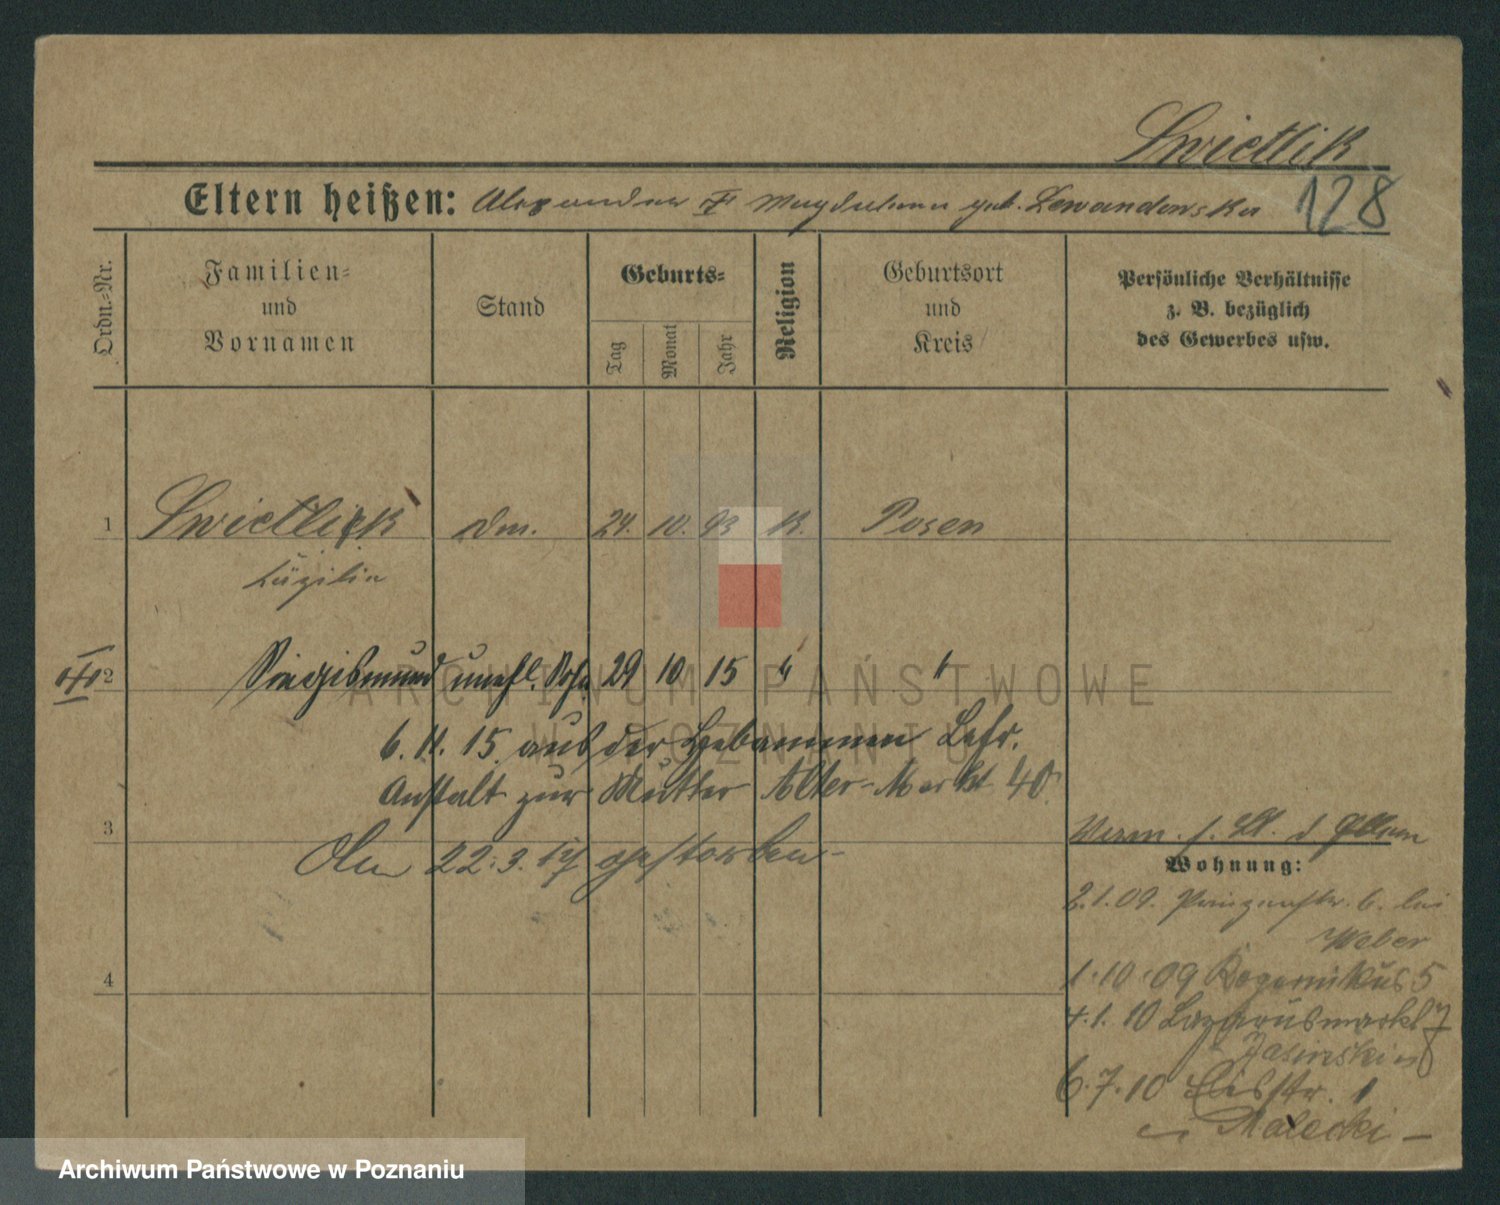 Swietlik
Eltern heißen: Alexander Magdalena geb. Lewandowska 128
Ordn.-Nr.
Familien-
und
Vornamen
Stand
Geburts-
Tag
Monat
Jahr
Religion
Geburtsort
und
Kreis
Persönliche Verhältnisse
z. B. bezüglich
des Gewerbes usw.
1 Swietlik Dm. 24. 10. 93 K. Posen
Cäzilie
2 Siegismund unehl. Sohn 29 10 15 " "
6. 11. 15. aus der Hebammen Lehr.
Anstalt zur Mutter Alter-Markt 40.
3
Am 22. 3. 17 gestorben
4
Wohnung:
2.1.09. Prinzenstr. 6. bei
Weber
1.10.09 5
4.1.10 Lazarusmarkt 7
Jasinski
6.7.10 1
Malecki
ARCHIWUM PAŃSTWOWE
W POZNANIU
Archiwum Państwowe w Poznaniu